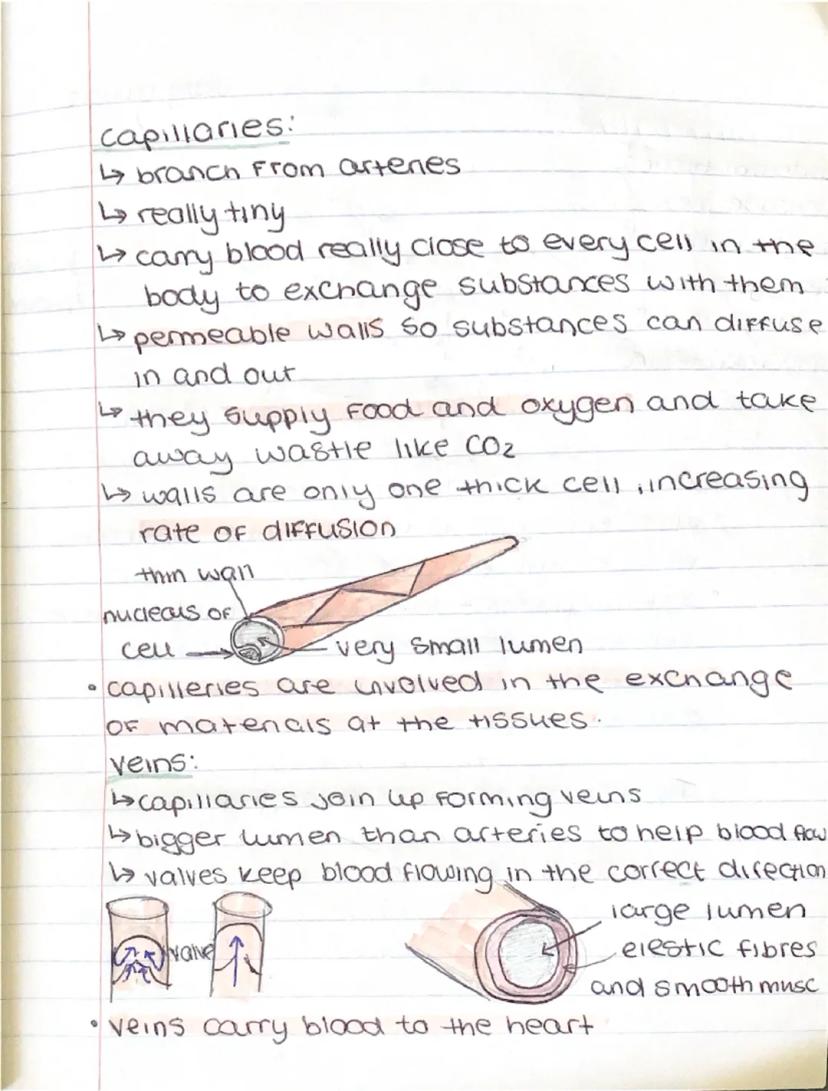 capillaries:
↳ branch from arteries
↳ really tiny
↳ carry blood really close to every cell in the
body to exchange substances with them
↳ permeable walls so substances can diffuse
in and out
↳ they supply food and oxygen and take
away wastle like CO2
↳ walls are only one thick cell, increasing
rate of diffusion
thin wall
nucleus of
cell
very small lumen
• capilleries are involved in the exchange
of materials at the tissues.
veins:
↳ capillaries join up forming veins
↳ bigger lumen than arteries to help blood flow
↳ valves keep blood flowing in the correct direction
valve
large lumen
elestic fibres
and smooth musc
• veins carry blood to the heart